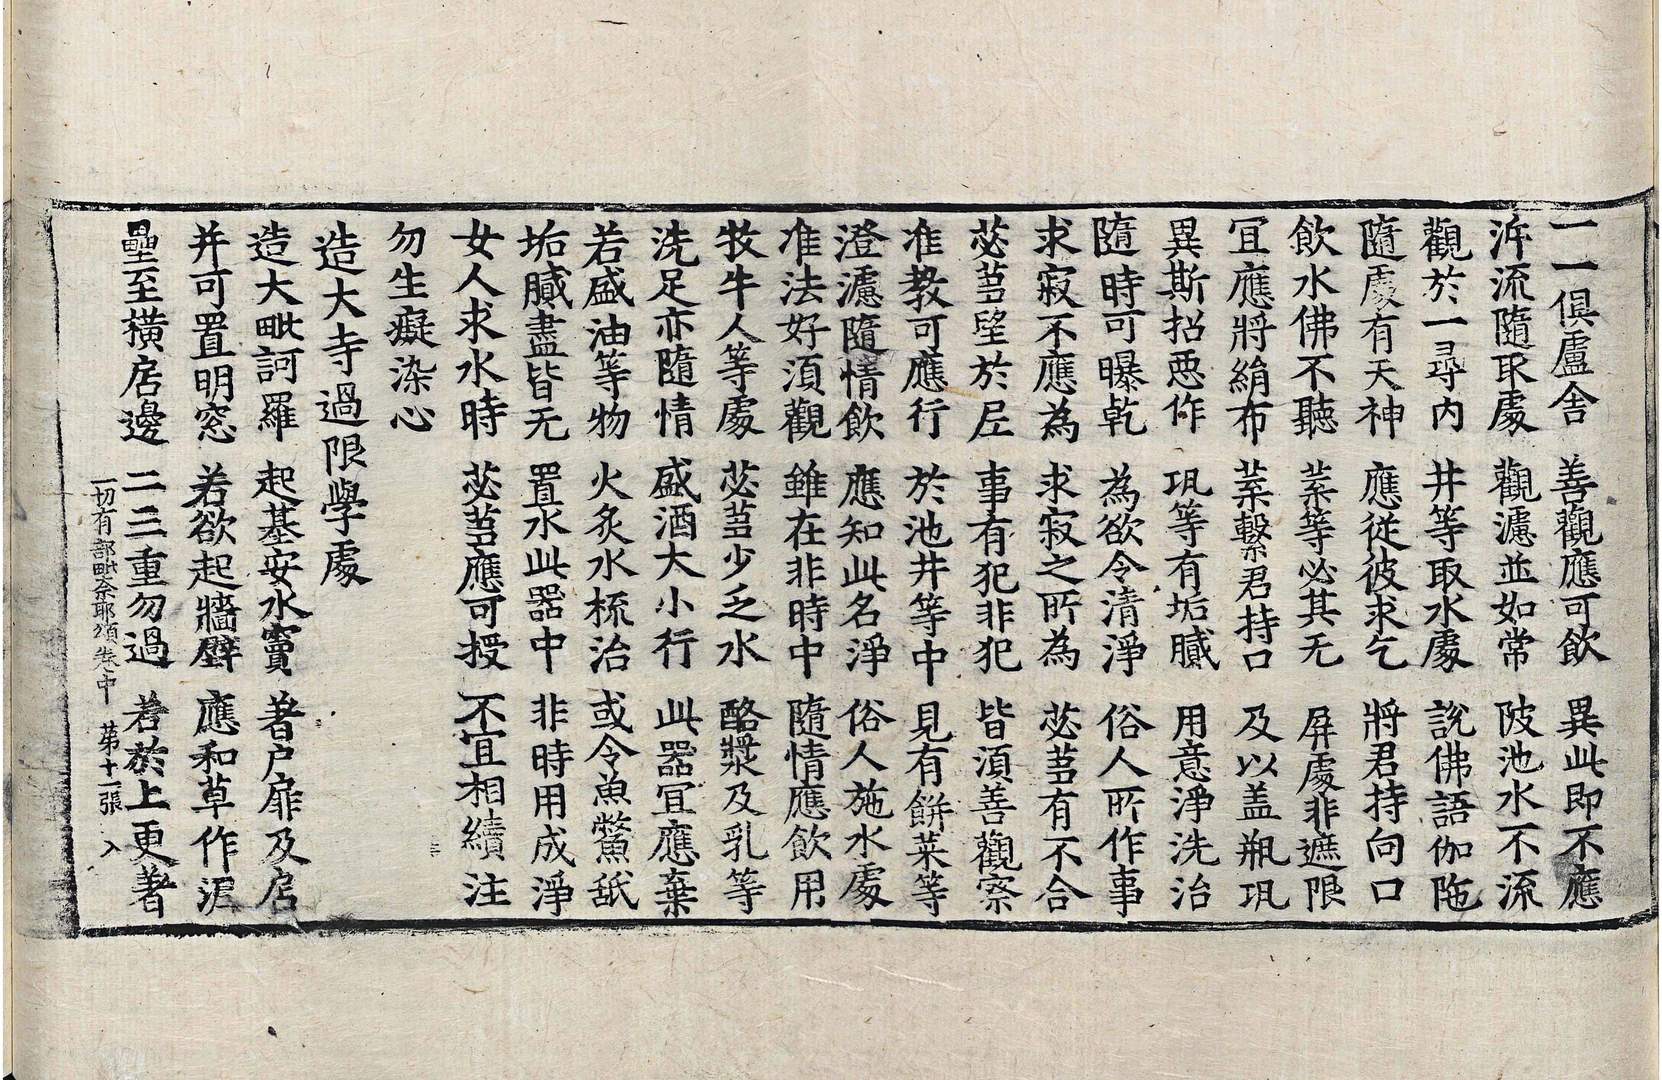 一一俱盧舍 善觀應可飲 異此即不應
泝流隨取處 觀濾並如常 陂池水不流
觀於一尋内 井等取水處 說佛語伽陁
隨處有天神 應従彼求乞 將君持向口
飲水佛不聽 葉等必其无 屏處非遮限
冝應將絹布 葉繫君持口 及以盖瓶瓨
異斯招惡作 瓨等有垢膩 用意淨洗治
隨時可曝乾 為欲令清淨 俗人所作事
求寂不應為 求寂之所為 苾芻有不合
苾芻望於尼 事有犯非犯 皆湏善觀察
准教可應行 於池井等中 見有餅菜等
澄濾隨情飲 應知此名淨 俗人施水處
准法好湏觀 雖在非時中 隨情應飲用
牧牛人等處 苾芻少乏水 酪漿及乳等
洗足亦隨情 盛酒大小行 此器冝應棄
若盛油等物 火炙水梳治 或令魚鱉舐
垢膩盡皆无 置水此器中 非時用成淨
女人求水時 苾芻應可授 不宜相續注
勿生癡染心
造大寺過限學處
造大毗訶羅 起基安水竇 著户扉及店
并可置明窓 若欲起牆壁 應和草作泥
壘至横居邊 二三重勿過 若於上更著
一切有部毗奈耶頌卷中 第十二張 入